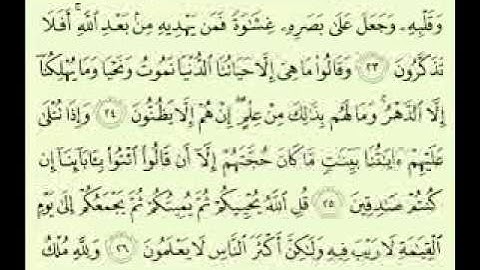 وَقَلْبِهِۦ وَجَعَلَ عَلَىٰ بَصَرِهِۦ غِشَٰوَةً فَمَن يَهْدِيهِ مِنۢ بَعْدِ ٱللَّهِ ۚ أَفَلَا
تَذَكَّرُونَ ٢٣ وَقَالُوا۟ مَا هِىَ إِلَّا حَيَاتُنَا ٱلدُّنْيَا نَمُوتُ وَنَحْيَا وَمَا يُهْلِكُنَآ
إِلَّا ٱلدَّهْرُ ۚ وَمَا لَهُم بِذَٰلِكَ مِنْ عِلْمٍ ۖ إِنْ هُمْ إِلَّا يَظُنُّونَ ٢٤ وَإِذَا تُتْلَىٰ
عَلَيْهِمْ ءَايَٰتُنَا بَيِّنَٰتٍ مَّا كَانَ حُجَّتَهُمْ إِلَّآ أَن قَالُوا۟ ٱئْتُوا۟ بِـَٔابَآئِنَآ إِن
كُنتُمْ صَٰدِقِينَ ٢٥ قُلِ ٱللَّهُ يُحْيِيكُمْ ثُمَّ يُمِيتُكُمْ ثُمَّ يَجْمَعُكُمْ إِلَىٰ يَوْمِ
ٱلْقِيَٰمَةِ لَا رَيْبَ فِيهِ وَلَٰكِنَّ أَكْثَرَ ٱلنَّاسِ لَا يَعْلَمُونَ ٢٦ وَلِلَّهِ مُلْكُ